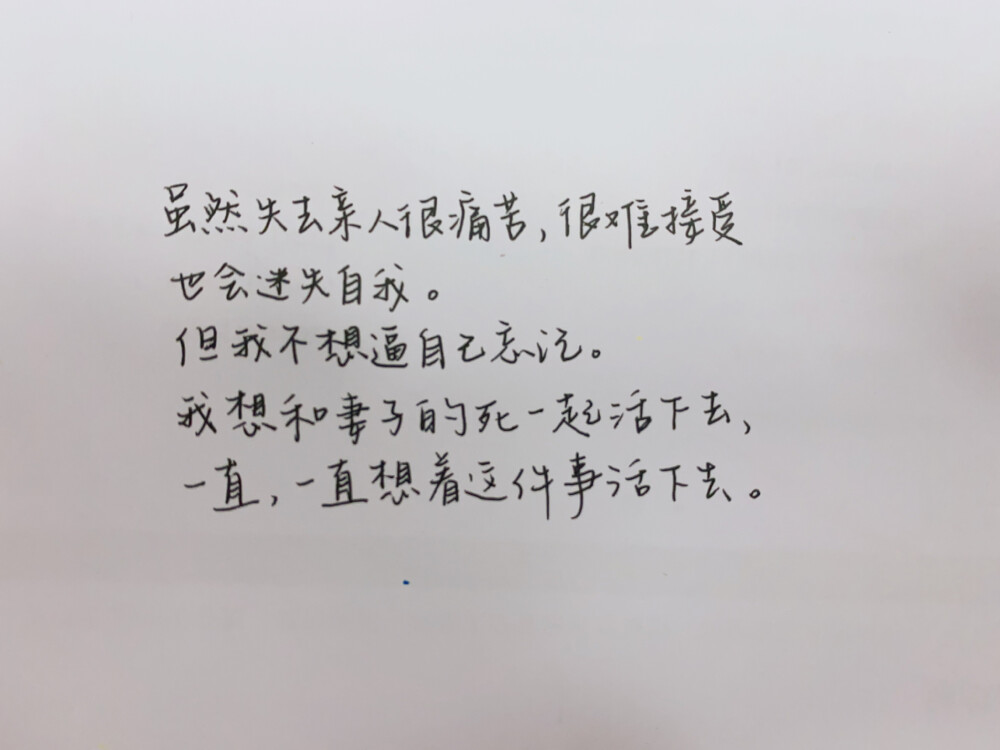 虽然失去亲人很痛苦,很难接受
也会迷失自我。
但我不想逼自己忘记。
我想和妻子的死一起活下去,
一直,一直想着这件事活下去。